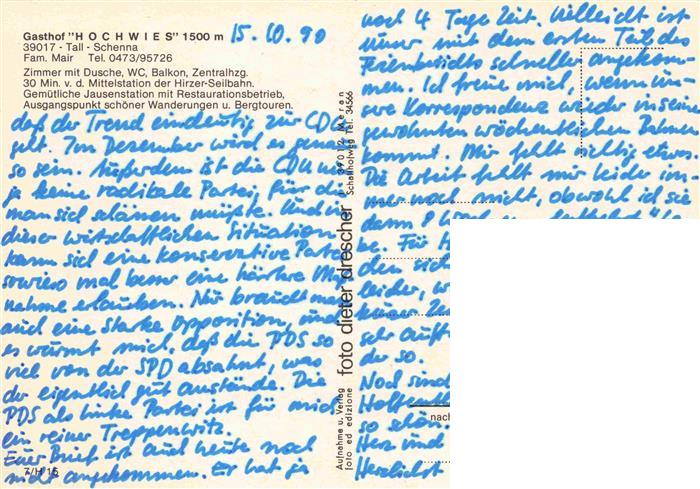 Gasthof "HOCHWIES" 1500 m
15.10.90
39017 - Tall - Schenna
Fam. Mair Tel. 0473/95726
Zimmer mit Dusche, WC, Balkon, Zentralhzg.
30 Min. v. d. Mittelstation der Hirzer-Seilbahn.
Gemütliche Jausenstation mit Restaurationsbetrieb,
Ausgangspunkt schöner Wanderungen u. Bergtouren.
daß der Trend eindeutig zur CDU
geht. Im Dezember wird es genau
so sein. Außerdem ist die CDU nun
ja keine radikale Partei, für die
man sich schämen müßte. Und in
dieser wirtschaftlichen Situation
kann sich eine konservative Partei
sowieso mal eine härtere Maß
nahme erlauben. Nur braucht man
auch eine starke Opposition, und
es wurmt mich, daß die PDS so
viel von der SPD absahnt, was
der eigentlich gut anstände. Die
PDS als linke Partei ist für mich
ein reiner Treppenwitz.
Euer Brief ist auch heute noch
nicht angekommen. Er hat ja
7/H 15
foto dieter drescher
39012 Meran
Schafferweg Tel. 34566
Aufnahme u. Verlag
foto ed edizione
noch 4 Tage Zeit. Vielleicht ist
unser mit dem ersten Teil des
Ferienberichts schneller angekom-
men. Ich freue mich, wenn un-
sere Korrespondenz wieder in seine
gewohnten wöchentlichen Bahnen
kommt. Mir fehlt richtig etwas.
Die Arbeit fehlt mir leider im-
noch nicht, obwohl ich sie
dann 8
be. Für
den sich
leider, w
sehr
der so.
Noch sind
so schön.
nach
Herz und
Herzlichst